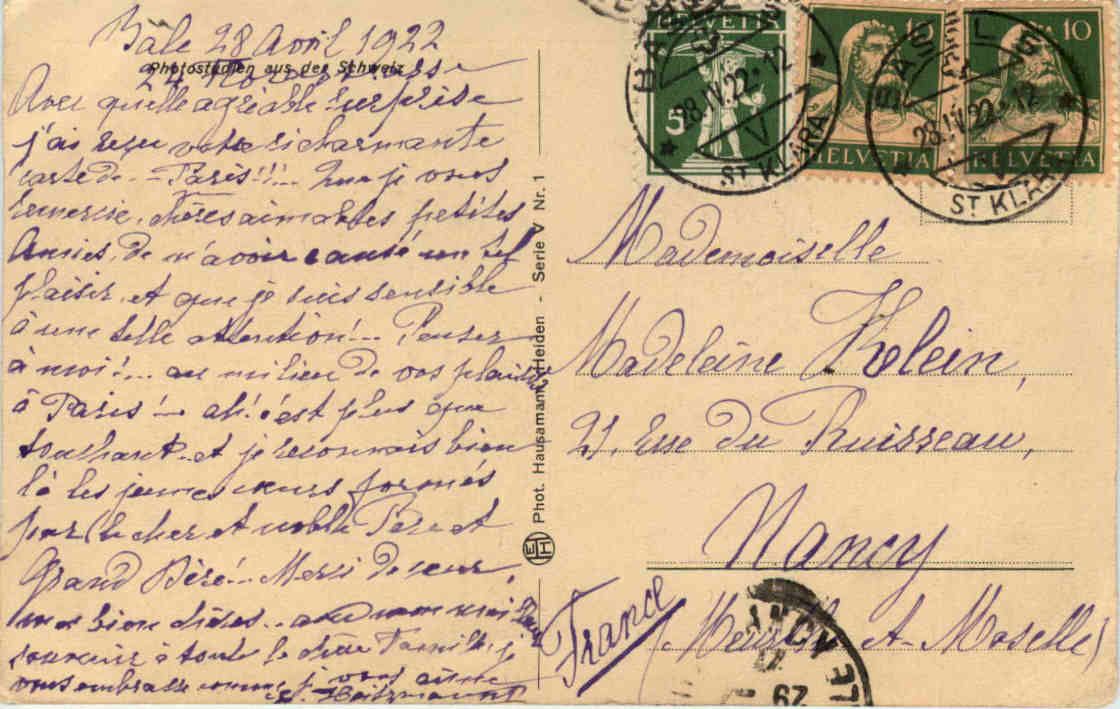 Bâle 28 Avril 1922
Photostudien aus der Schweiz
24
Avec quelle agréable surprise
j'ai reçu votre si charmante
carte de - Paris!!!... Que je vous
remercie, chères aimables petites
Amies, de m'avoir causé un tel
plaisir, et que je suis sensible
à une telle attention!... Penser
à moi!... au milieu de vos plaisirs
à Paris!... ah! c'est plus que
touchant... et je reconnais bien
là les jeunes cœurs formés
par le cher et noble Père et
Grand Père!... Merci de cœur,
mes bien chères...
souvenir à toute la chère Famille, je
vous embrasse comme je vous aime
Phot. Hausamann, Heiden - Serie V Nr. 1
EH
HELVETIA
5
10
HELVETIA
10
HELVETIA
BASEL
28.IV.22.12
V
ST KLARA
BASEL
28.IV.22.12
V
ST KLARA
Mademoiselle
Madeleine Klein,
21, rue du Ruisseau,
Nancy
(Meurthe et Moselle)
France
NANCY